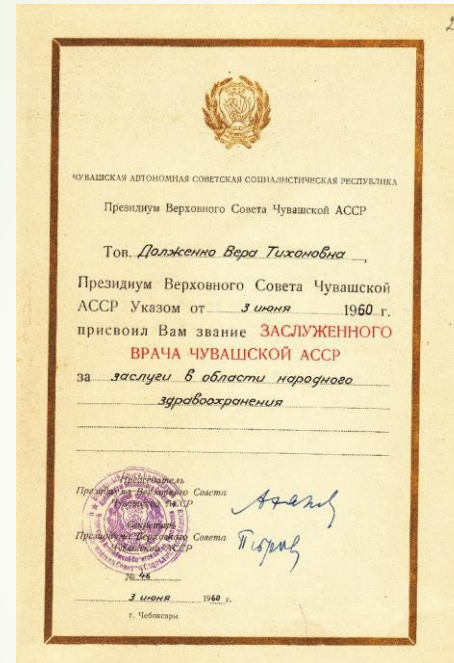 2
ЧУВАШСКАЯ АВТОНОМНАЯ СОВЕТСКАЯ СОЦИАЛИСТИЧЕСКАЯ РЕСПУБЛИКА
Президиум Верховного Совета Чувашской АССР
Тов. Долженко Вера Тихоновна,
Президиум Верховного Совета Чувашской
АССР Указом от 3 июня 1960 г.
присвоил Вам звание ЗАСЛУЖЕННОГО
ВРАЧА ЧУВАШСКОЙ АССР
за заслуги в области народного
здравоохранения
Председатель
Президиума Верховного Совета
Чувашской АССР
Секретарь
Президиума Верховного Совета
Чувашской АССР
№ 46
3 июня 1960 г.
г. Чебоксары